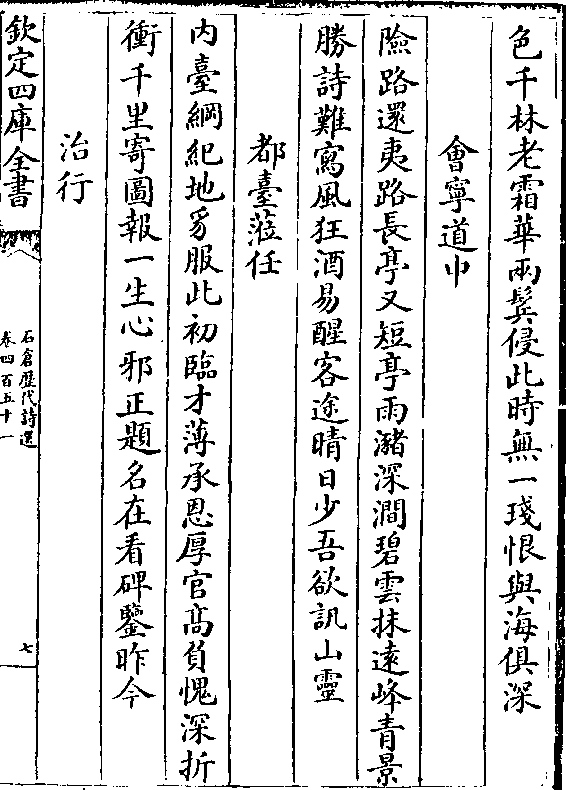 色千林老霜華兩鬓侵此時無一琖恨與海俱深
會寧道中
險路還夷路長亭又短亭雨瀦深澗碧雲抹遠峰青景
勝詩難寫風狂酒易醒客途晴日少吾欲訊山靈
都臺蒞任
内臺綱紀地豸服此初臨才薄承恩厚官髙負愧深折
衝千里寄圖報一生心邪正題名在看碑鑒昨今
治行
欽定四庫全書
石倉歴代詩選
卷四百五十一
七